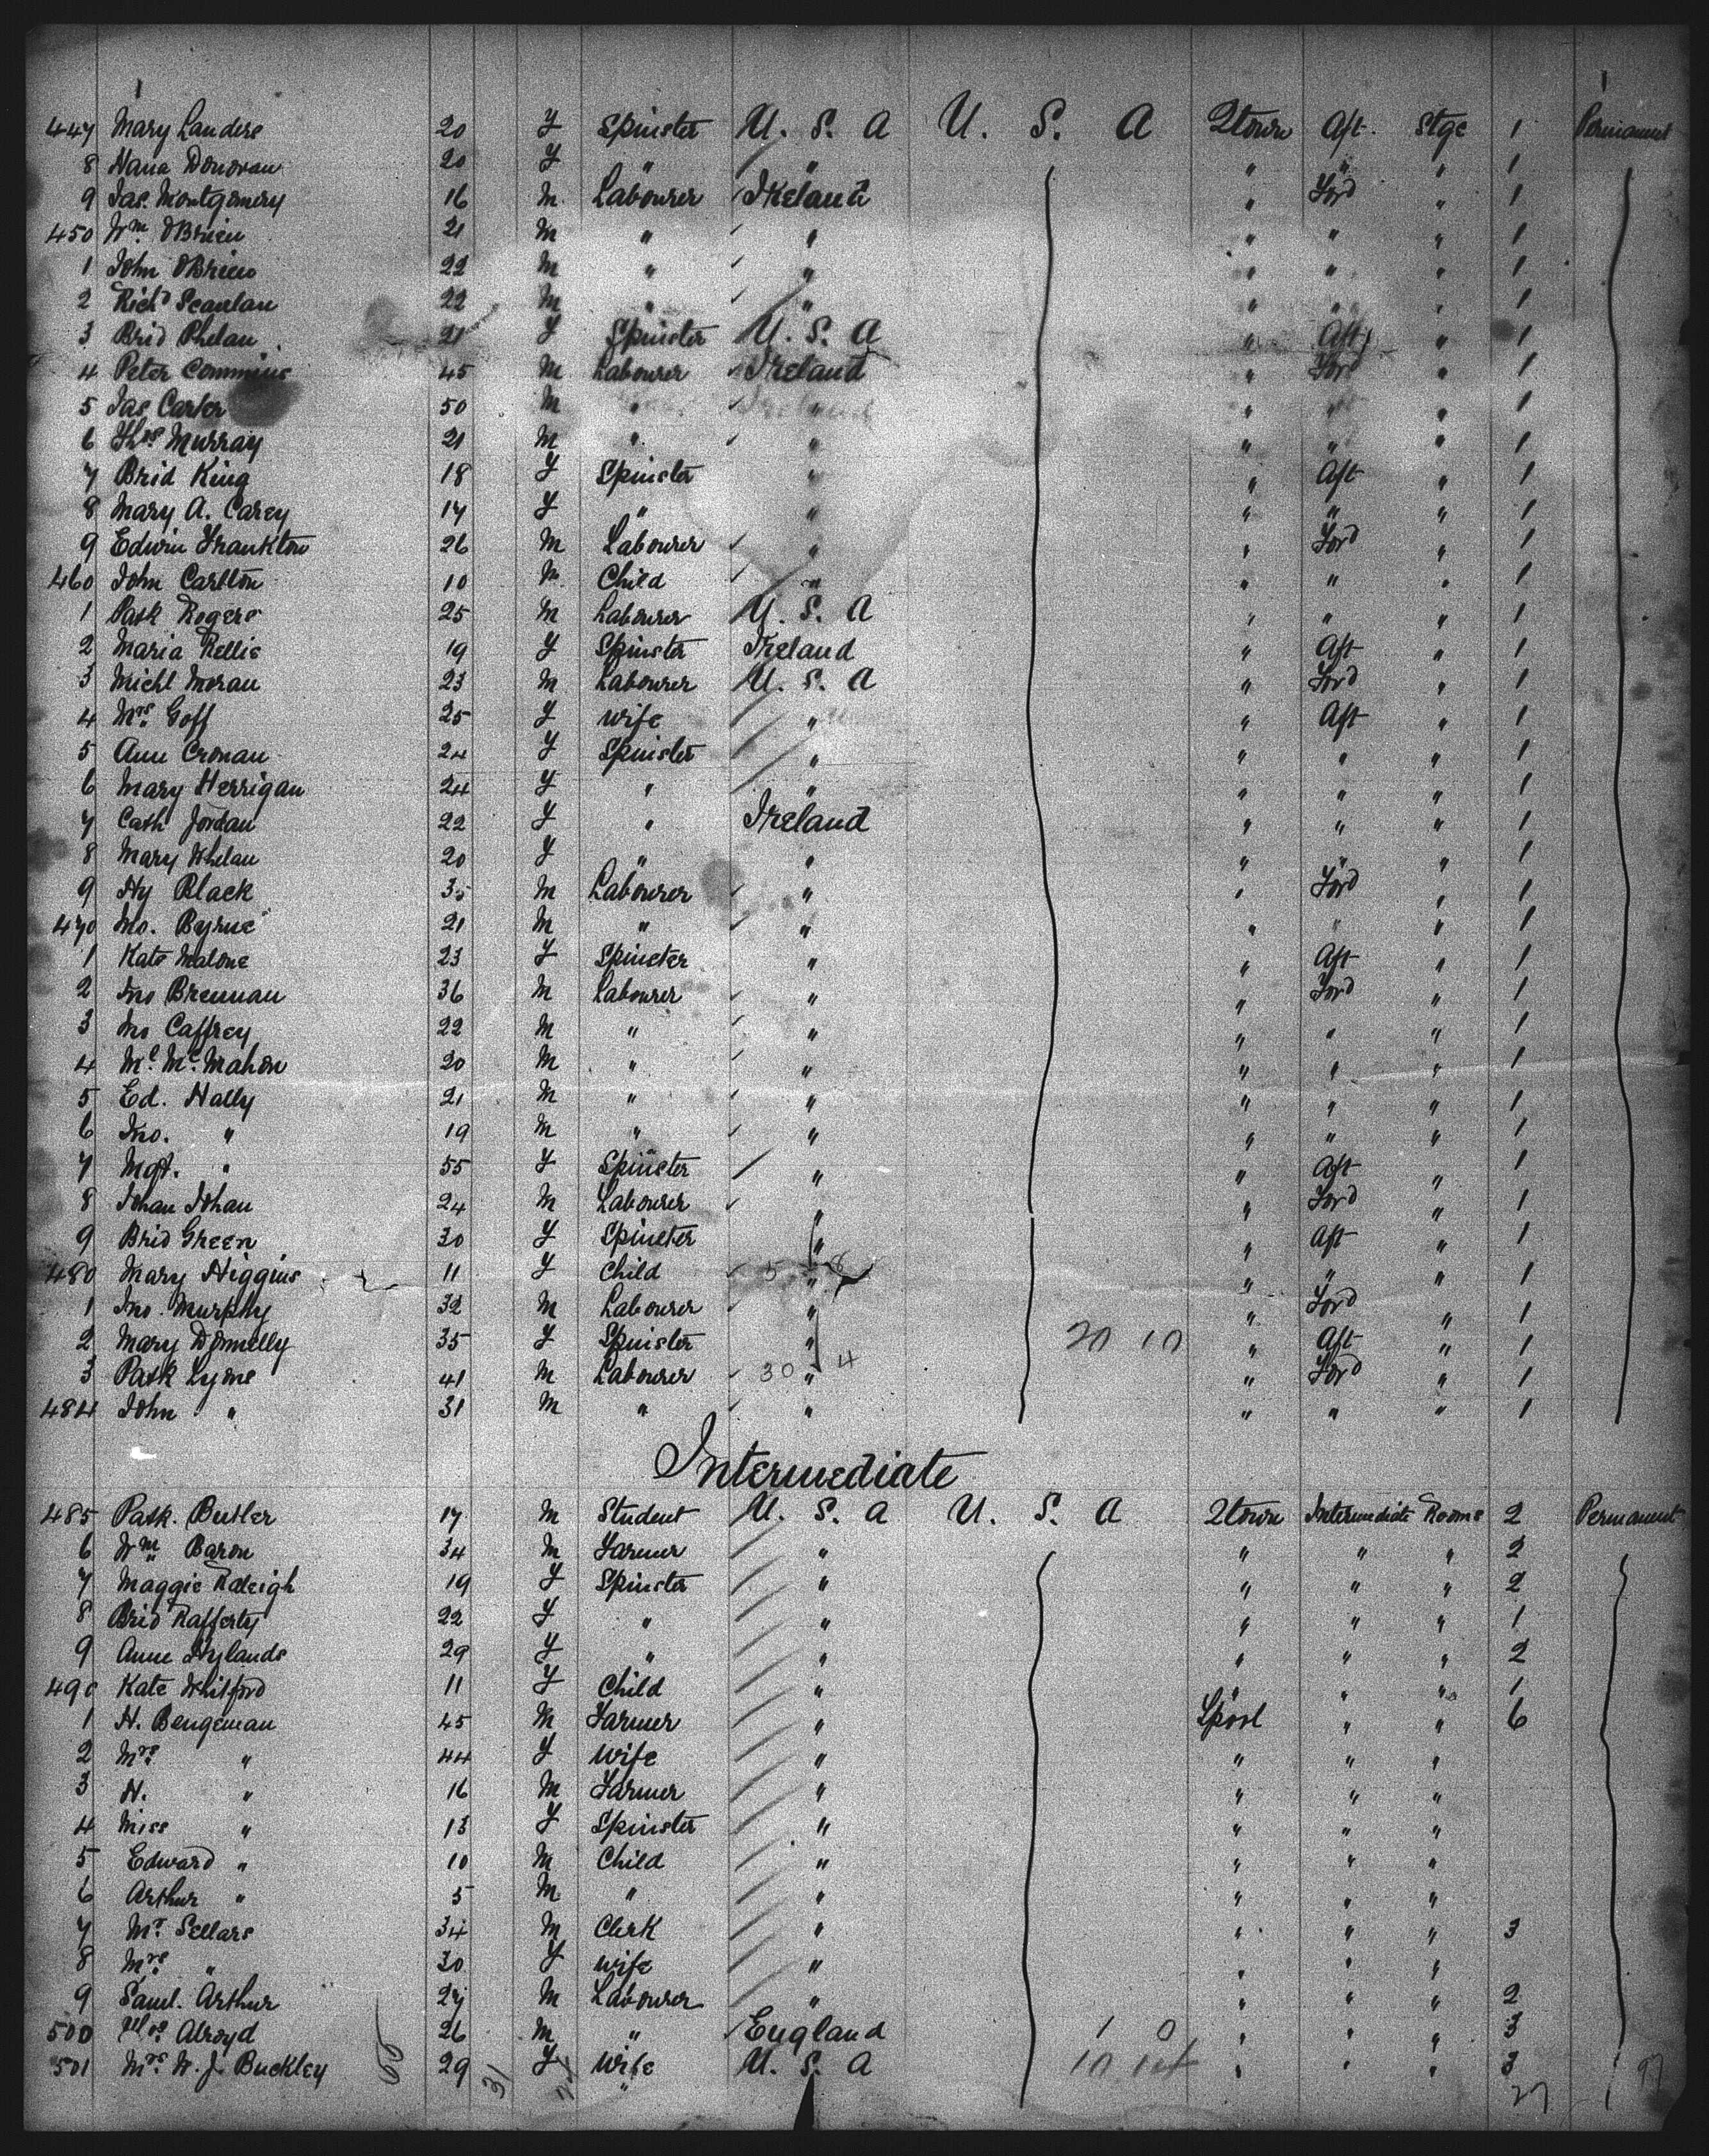 447 Mary Landers 20 F Spinster U. S. A U. S. A 2town Aft. Stge 1 Permanent
8 Hana Donovan 20 F " " " " " 1
9 Jas. Montgomery 16 M Labourer Ireland " Ford " 1
450 Wm OBrien 21 M " " " " " 1
1 John OBrien 22 M " " " " " 1
2 Richd Scanlan 22 M " " " " " 1
3 Brid Phelan 21 F Spinster U. S. A " Aft " 1
4 Peter Commins 45 M Labourer Ireland " Ford " 1
5 Jas Carter 50 M " " " " " 1
6 Thos Murray 21 M " " " " " 1
7 Brid King 18 F Spinster " " Aft " 1
8 Mary A. Carey 17 F " " " " " 1
9 Edwin Frankton 26 M Labourer " " Ford " 1
460 John Carlton 10 M Child " " " " 1
1 Patk Rogers 25 M Labourer U. S. A " " " 1
2 Maria Kellie 19 F Spinster Ireland " Aft " 1
3 Michl Moran 23 M Labourer U. S. A " Ford " 1
4 Mrs Goff 25 F Wife " " Aft " 1
5 Ann Cronan 24 F Spinster " " " " 1
6 Mary Herrigan 24 F " " " " " 1
7 Cath Jordan 22 F " Ireland " " " 1
8 Mary Whelan 20 F " " " " " 1
9 Hy Black 35 M Labourer " " Ford " 1
470 Jno. Byrne 21 M " " " " " 1
1 Kate Malone 23 F Spinster " " Aft " 1
2 Jno Brennan 36 M Labourer " " Ford " 1
3 Jno Caffrey 22 M " " " " " 1
4 Ml McMahon 20 M " " " " " 1
5 Ed. Hally 21 M " " " " " 1
6 Jno. " 19 M " " " " " 1
7 Mgt. " 55 F Spinster " " Aft " 1
8 Johan Johan 24 M Labourer " " Ford " 1
9 Brid Green 30 F Spinster " " Aft " 1
480 Mary Higgins 11 F Child 5 " 8 " " " 1
1 Jno. Murphy 32 M Labourer " " Ford " 1
2 Mary Donnelly 35 F Spinster " 20 10 " Aft " 1
3 Patk Lyons 41 M Labourer 30 " 4 " Ford " 1
484 John " 31 M " " " " " 1
Intermediate
485 Patk. Butler 17 M Student U. S. A U. S. A 2town Intermediate Rooms 2 Permanent
6 Wm Baron 34 M Farmer " " " " 2
7 Maggie Raleigh 19 F Spinster " " " " 2
8 Brid Rafferty 22 F " " " " " 1
9 Anne Hylands 29 F " " " " " 2
490 Kate Whitford 11 F Child " " " " 1
1 H. Bengeman 45 M Farmer " Lpool " " 6
2 Mrs " 44 F Wife " " " "
3 H. " 16 M Farmer " " " "
4 Miss " 13 F Spinster " " " "
5 Edward " 10 M Child " " " "
6 Arthur " 5 M " " " " "
7 Mr Sellars 34 M Clerk " " " " 3
8 Mrs " 30 F Wife " " " "
9 Saml. Arthur 27 M Labourer " " " " 2
500 Alroyd 26 M " England 1 0 " " " 3
501 Mrs W. J. Buckley 29 F Wife U. S. A 10 " " " 3
31 27 97